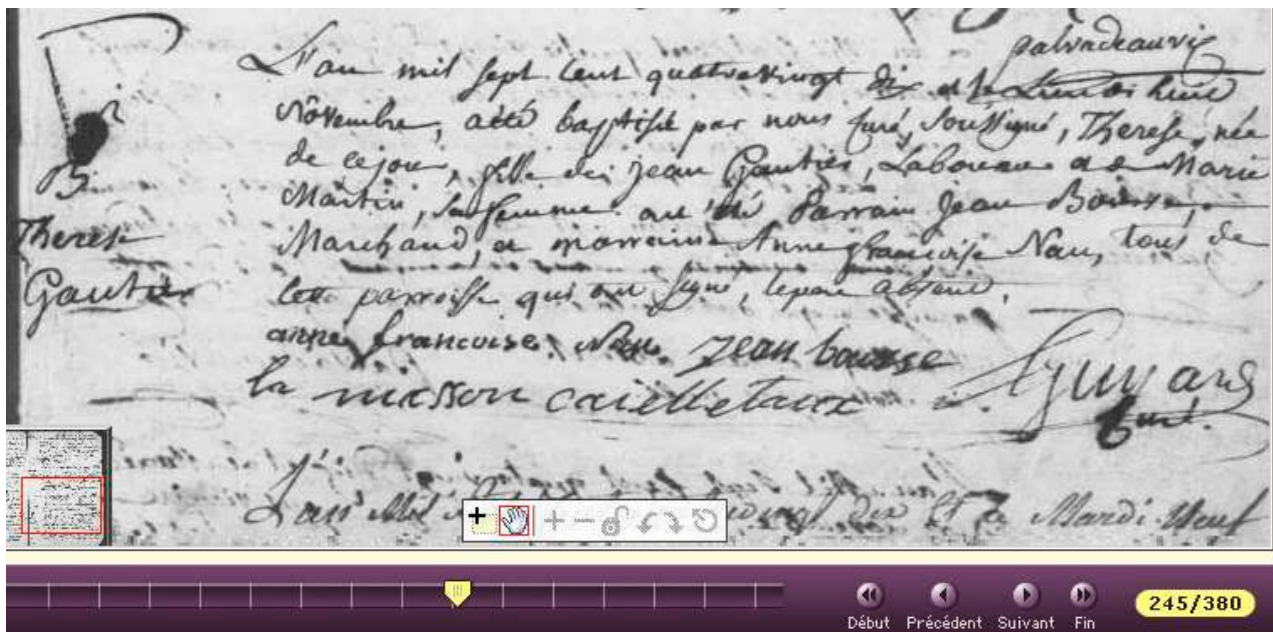 L'an mil sept cent quatrevingt dix et le Lundi huit
Novembre, a été baptisée par nous curé, soussigné, Therese, née
de ce jour, fille de jean Gautier, Laboureur et de Marie
Martin, sa femme ont été Parrain Jean
Marchand, et marraine Anne francoise Nau, tous de
cette parroisse qui ont signé, le pere absent,
Therese
Gautier
anne francoise Nau jean
la masson cailletaux
Guyard
Curé.
L'an Mil dix Mardi Neuf
Début Précédent Suivant Fin
245/380